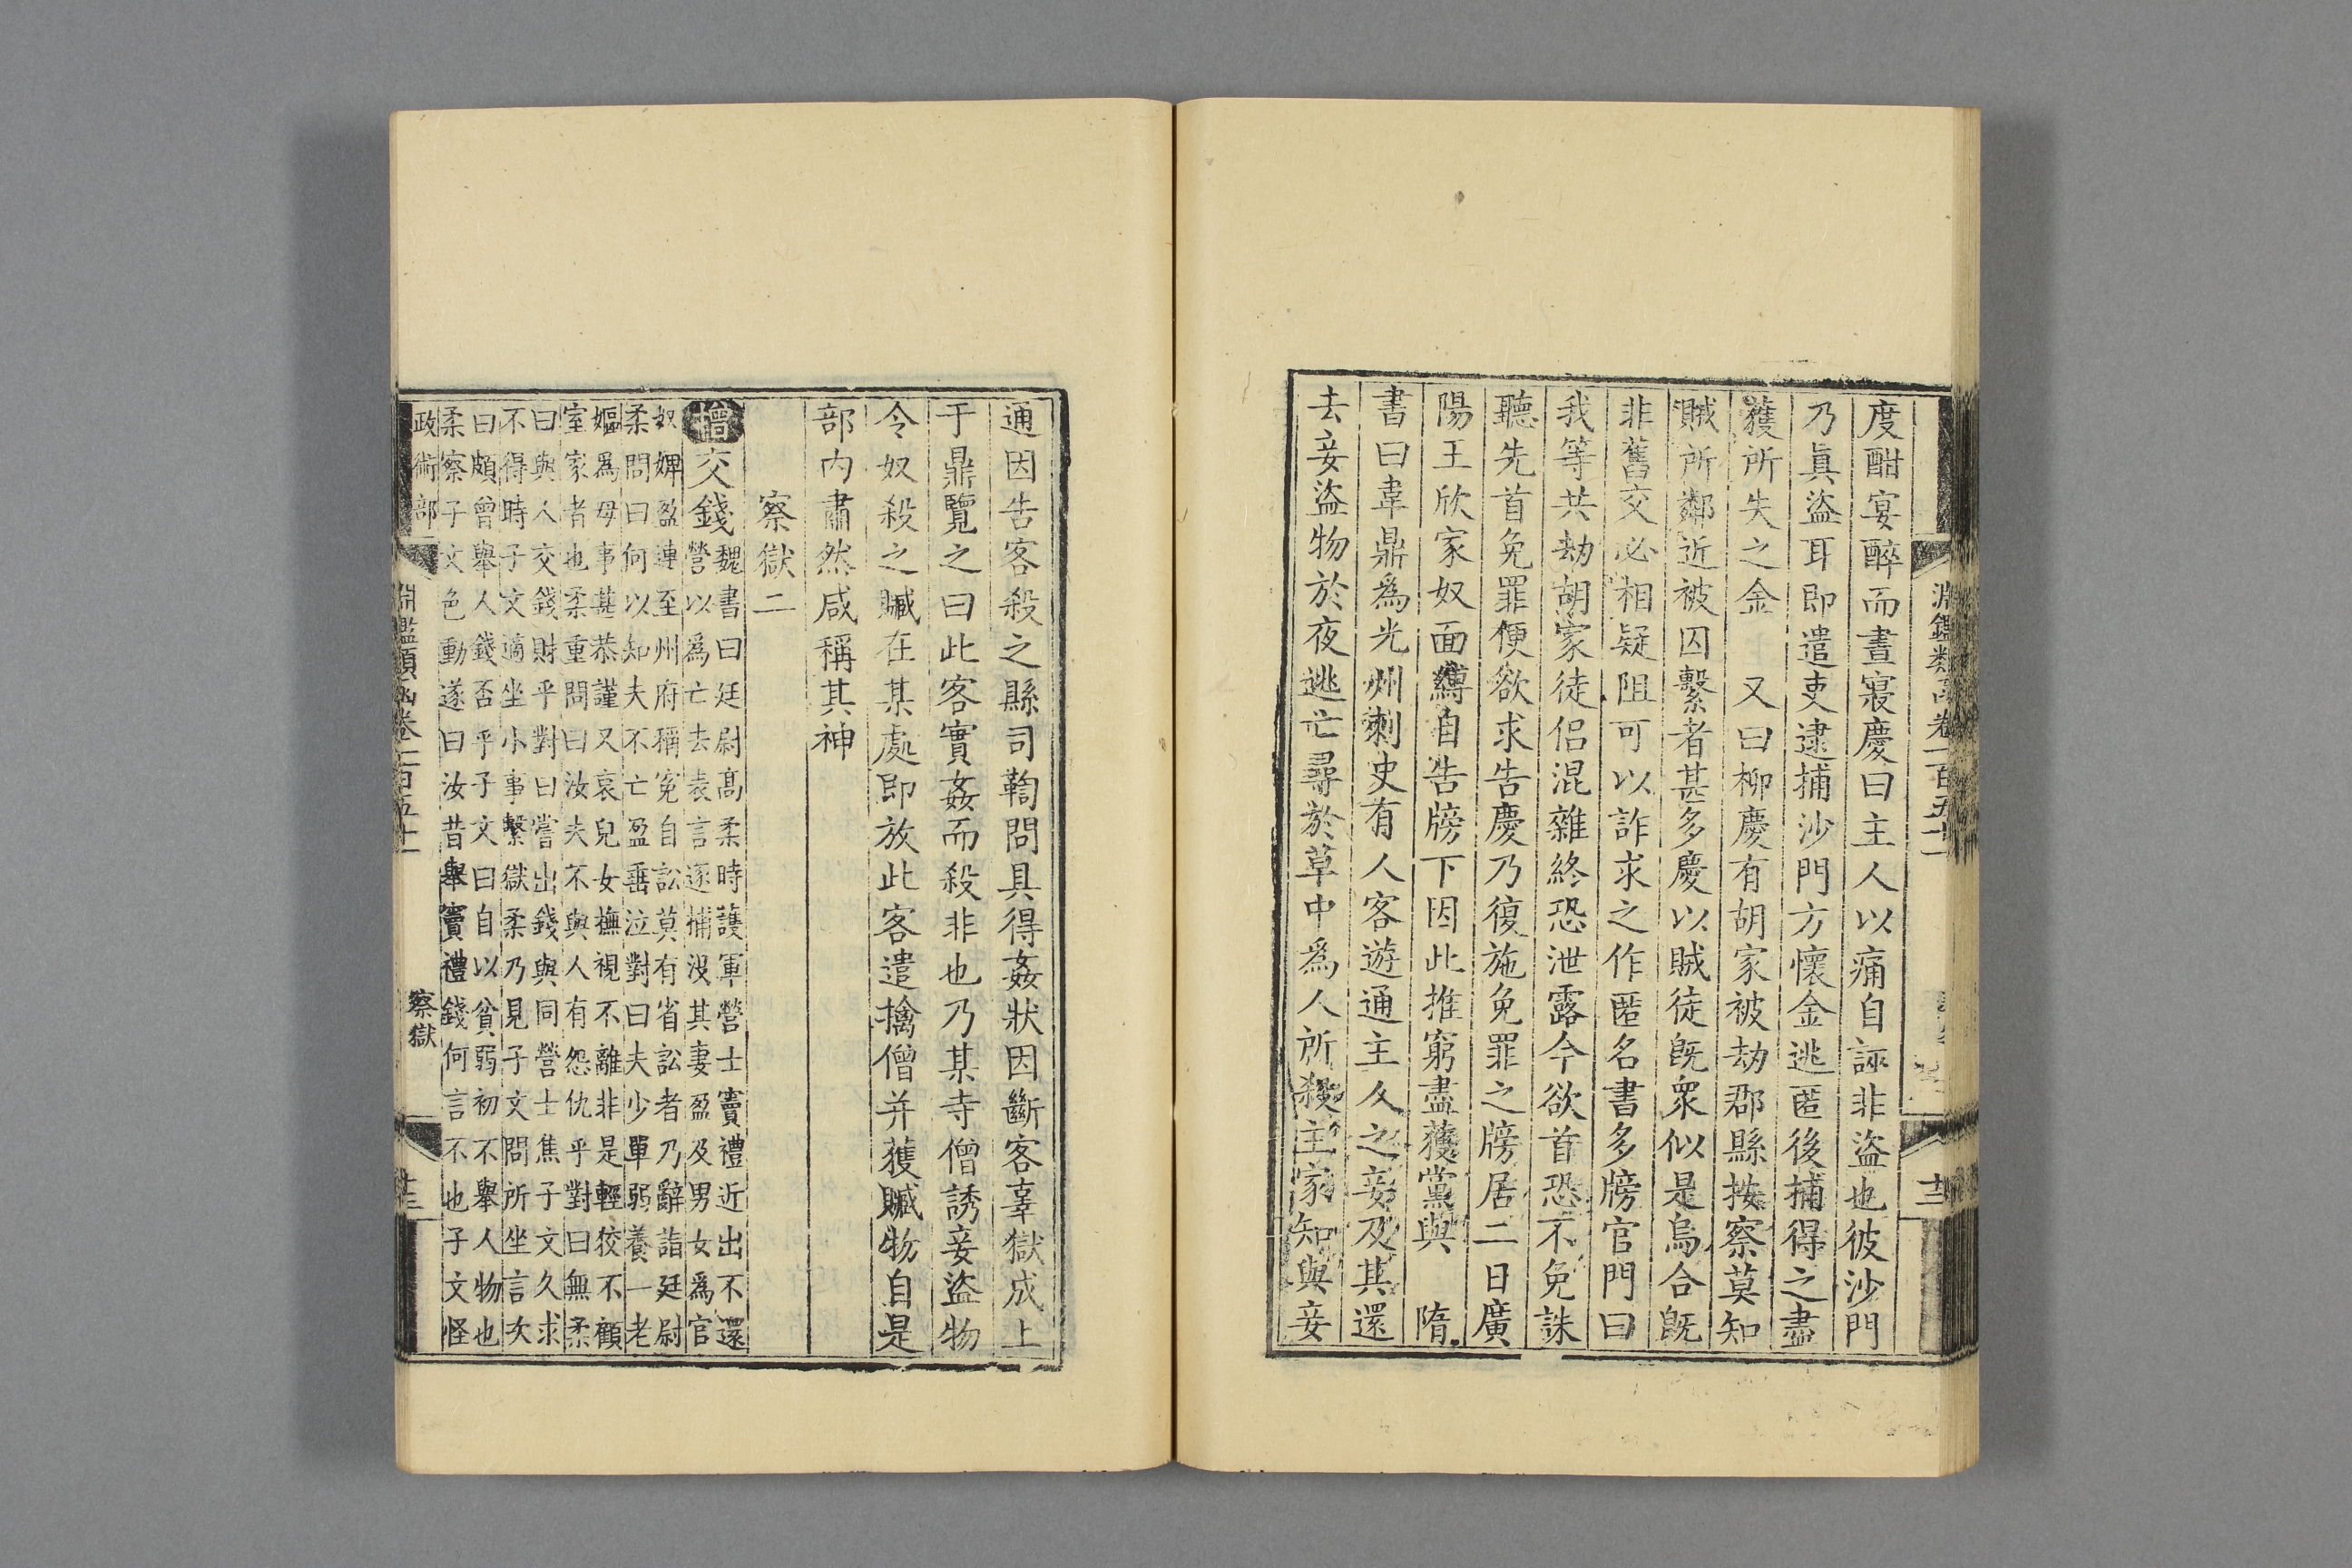 淵鑑類函卷一百五十一
十二
度酣宴醉而晝寢慶曰主人以痛自誣非盜也彼沙門
乃眞盜耳即遣吏逮捕沙門方懷金逃匿後捕得之盡
獲所失之金 又曰柳慶有胡家被劫郡縣按察莫知
賊所鄰近被囚繫者甚多慶以賊徒旣衆似是烏合旣
非舊交必相疑阻可以詐求之作匿名書多牓官門曰
我等共劫胡家徒侶混雜終恐泄露今欲首恐不免誅
聽先首免罪便欲求告慶乃復施免罪之牓居二日廣
陽王欣家奴面縛自告牓下因此推窮盡獲黨與 隋
書曰韋鼎爲光州刺史有人客遊通主人之妾及其還
去妾盜物於夜逃亡尋於草中爲人所殺主家知與妾
通因告客殺之縣司鞫問具得姦狀因斷客辜獄成上
于鼎覽之曰此客實姦而殺非也乃某寺僧誘妾盜物
令奴殺之贓在某處即放此客遣擒僧并獲贓物自是
部內肅然咸稱其神
察獄二
增交錢
魏書曰廷尉高柔時護軍營士竇禮近出不還
營以爲亡去表言逐捕沒其妻盈及男女爲官
奴婢盈連至州府稱寃自訟莫有省訟者乃辭詣廷尉
柔問曰何以知夫不亡盈垂泣對曰夫少單弱養一老
嫗爲母事甚恭謹又哀兒女撫視不離非是輕狡不顧
室家者也柔重問曰汝夫不與人有怨仇乎對曰無柔
曰與人交錢財乎對曰嘗出錢與同營士焦子文久求
不得時子文適坐小事繫獄柔乃見子文問所坐言次
曰頗曾舉人錢否乎子文曰自以貧弱初不舉人物也
柔察子文色動遂曰汝昔舉竇禮錢何言不也子文怪
政術部
淵鑑類函卷一百五十一
察獄
十三